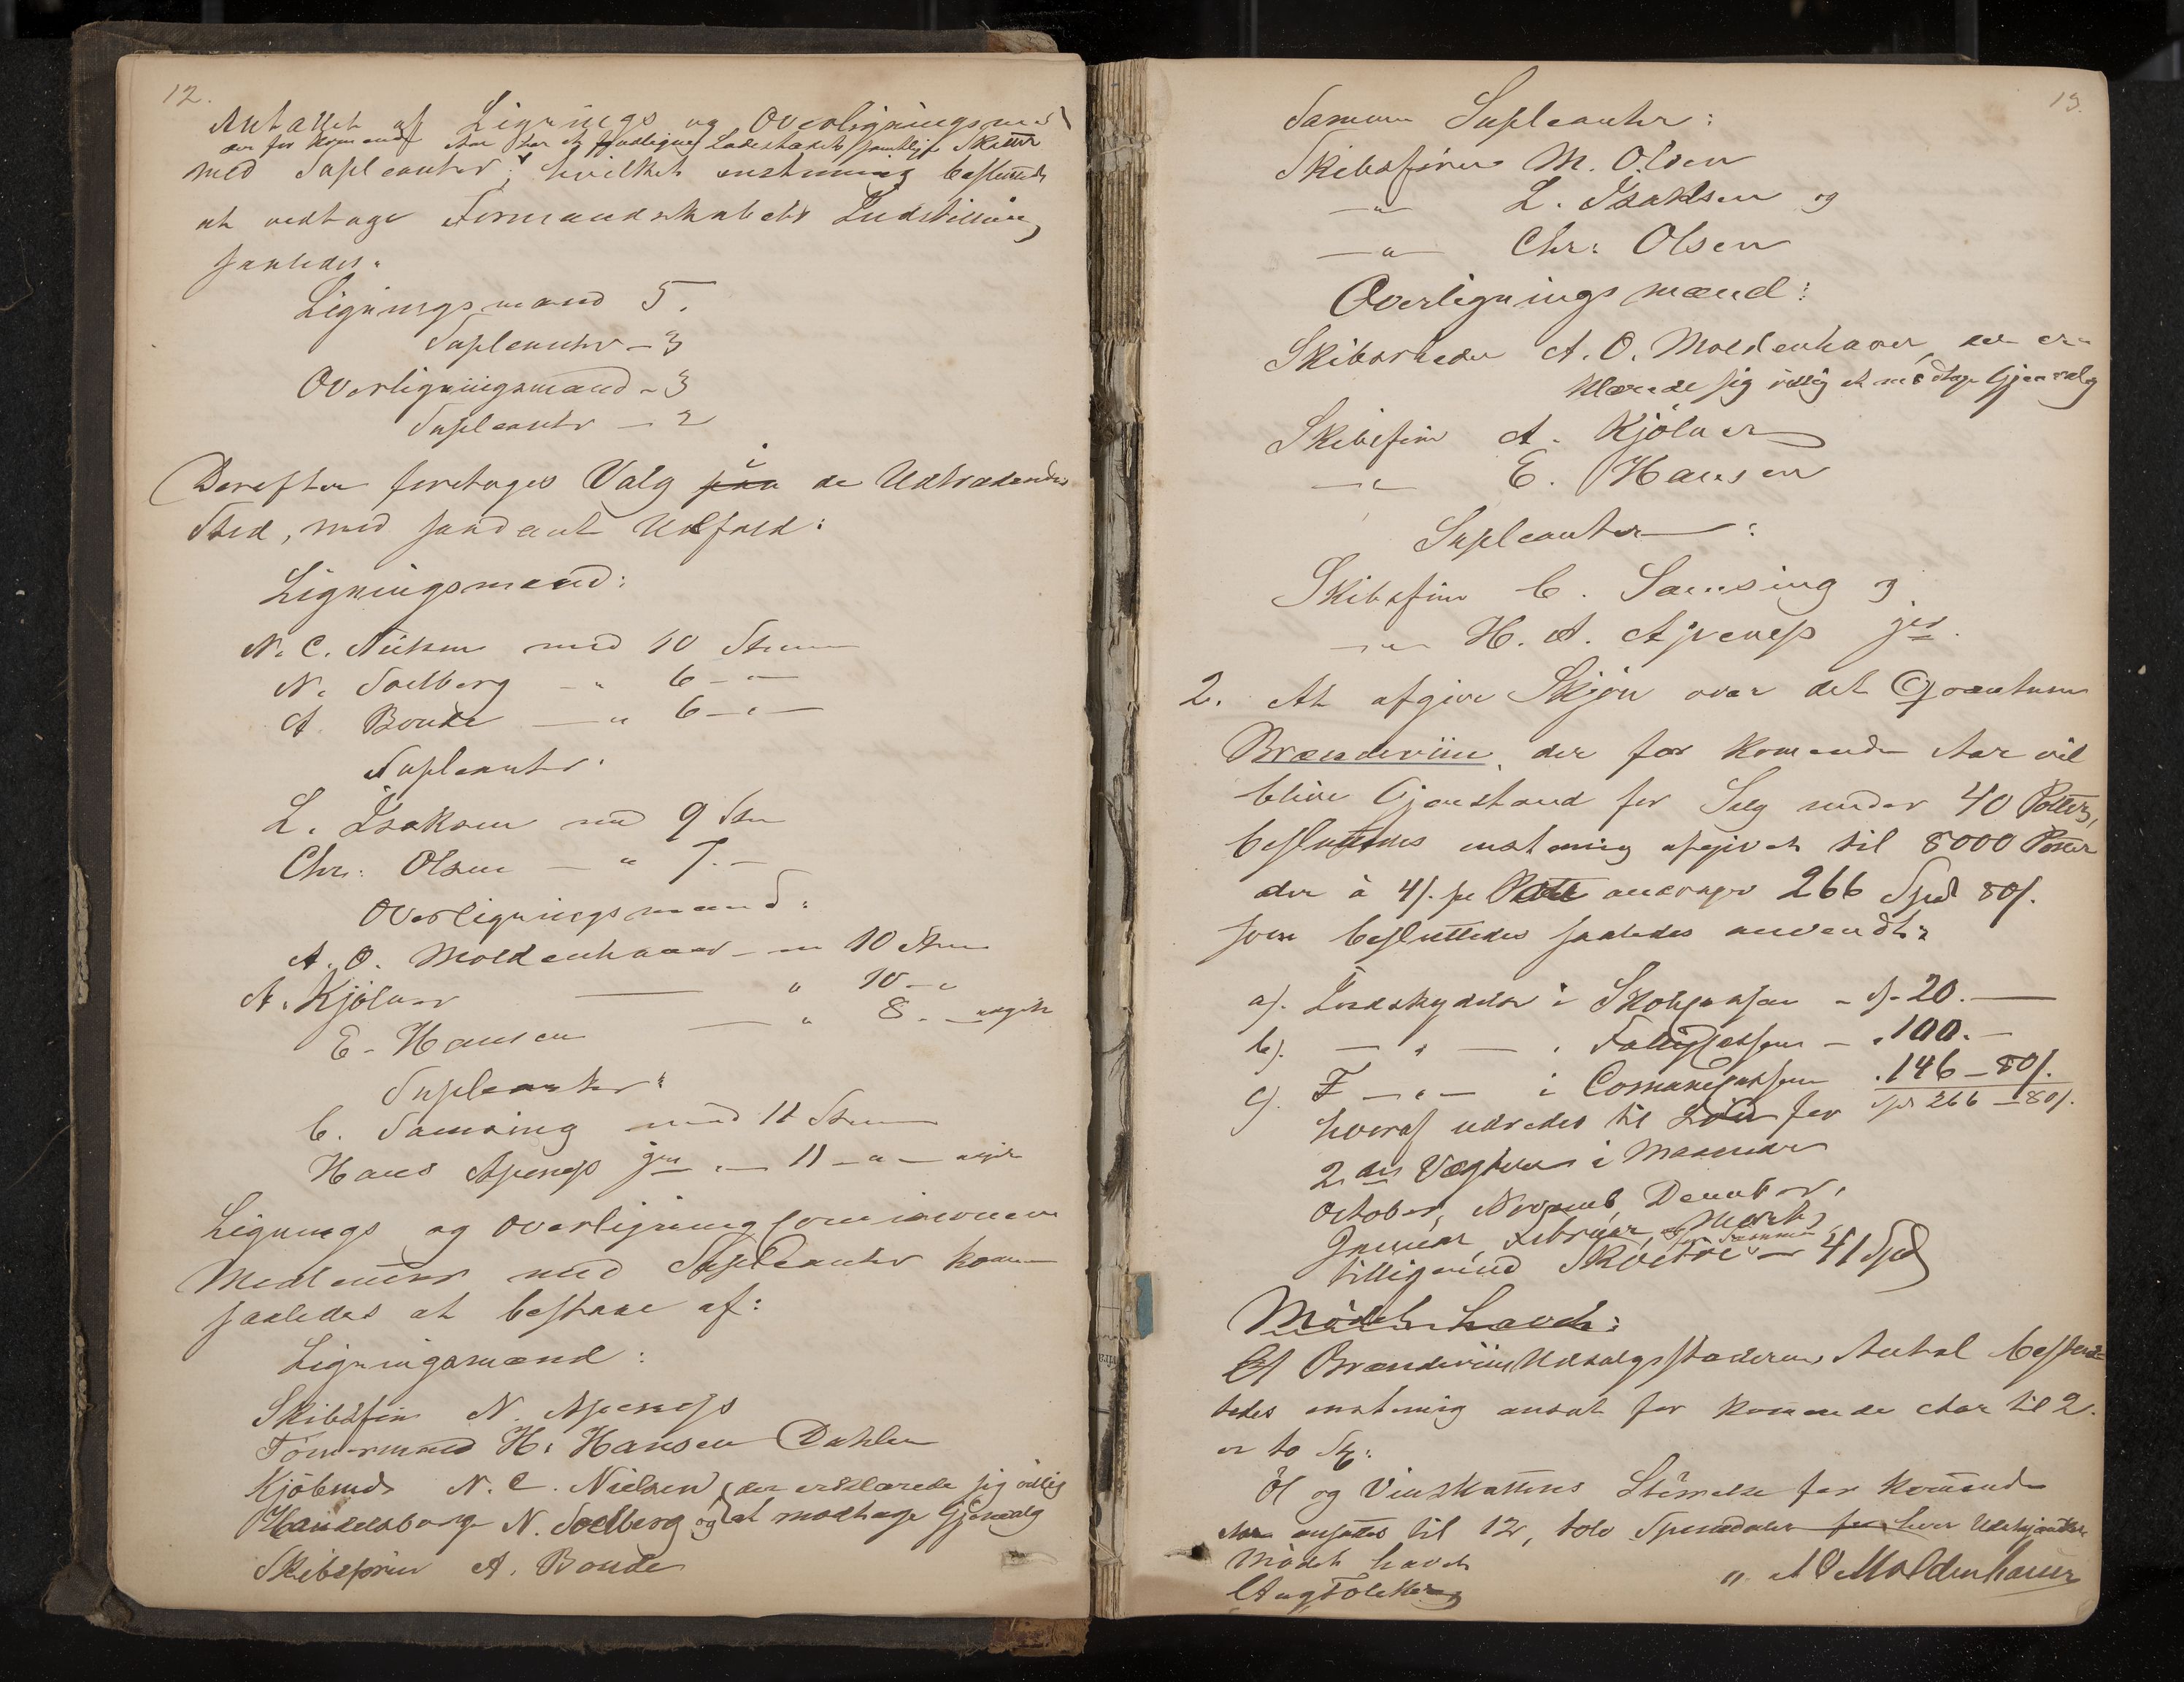 12.
Antallet af Lignings og Overligningsmænd
der for kommende Aar har at udligne Ladestedets samtlige Skatter
med Supleanter; hvilket enstemmig besluttedes
at vedtage Formandskabets Indstilling
saaledes:
Ligningsmænd 5.
Supleanter - 3
Overligningsmænd - 3
Supleanter - 2
Derefter foretoges Valg i de Udtrædendes
Sted, med saadant Udfald:
Ligningsmænd:
N. C. Nielsen med 10 Stemmer
N. Soelberg - " 6 - " -
A. Bonde - " 6 - " -
Supleanter:
L. Isaksen med 9 Stm
Chr: Olsen - " 7. -
Overligningsmænd:
A. O. Moldenhauer - " 10 Stem
A. Kjölner - " 10 - "
E. Hansen - " 8. -
Supleanter:
C. Samsing med 11 Stem
Hans Apenes jun - " 11 - " -
Lignings og Overligningscomissionens
Medlemer med Supleanter kom
saaledes at bestaae af:
Ligningsmænd:
Skibsfører N. Apenes
Tömmermand H. Hansen Dahlen
Kjöbmd N. C. Nielsen, der erklærede sig villig
Handelsborger N. Soelberg og at modtage Gjenvalg
Skibsfører A. Bonde
13.
Samme Supleanter:
Skibsfører M. Olsen
- " - L. Isaksen og
- " - Chr: Olsen
Overligningsmænd:
Skibsrheder A. O. Moldenhauer, der er-
klærede sig villig at modtage Gjenvalg
Skibsfører A. Kjölner
- " - E. Hansen
Supleanter:
Skibsfører C. Samsing og
- " - H. A. Apenes jun.
2. At afgive Skjøn over det Qvantum
Brændeviin, der for kommende Aar vil
blive Gjenstand for Salg under 40 Potter,
besluttedes enstemmig afgivet til 8000 Potter
der à 4 s. pr Pott andrager 266 Spd 80 s.
som besluttedes saaledes anvendt:
a). Indskydelse i Skolekassen - 20. -
b). - " - i Fattigkassen - " 100. -
c). - " - i Comunekassen " 146 - 80 s.
hvoraf udredes til Løn for Spd 266 - 80 s.
2 de Vægtere i Maaneder
October, Novemb, December,
Januar, Februar, og Marts
tilligemed Skoeire - 41 Spd
Mödet hævet:
Af Brændeviins Udsalgsstedernes Antal beslut-
tedes enstemmig ansat for kommende Aar til 2.
er to St:
Öl og Vinskattens Störrelse for kommende
Aar ansattes til 12, tolv Speciedaler for hver Udskjænker
Mödet hævet
A O Moldenhauer